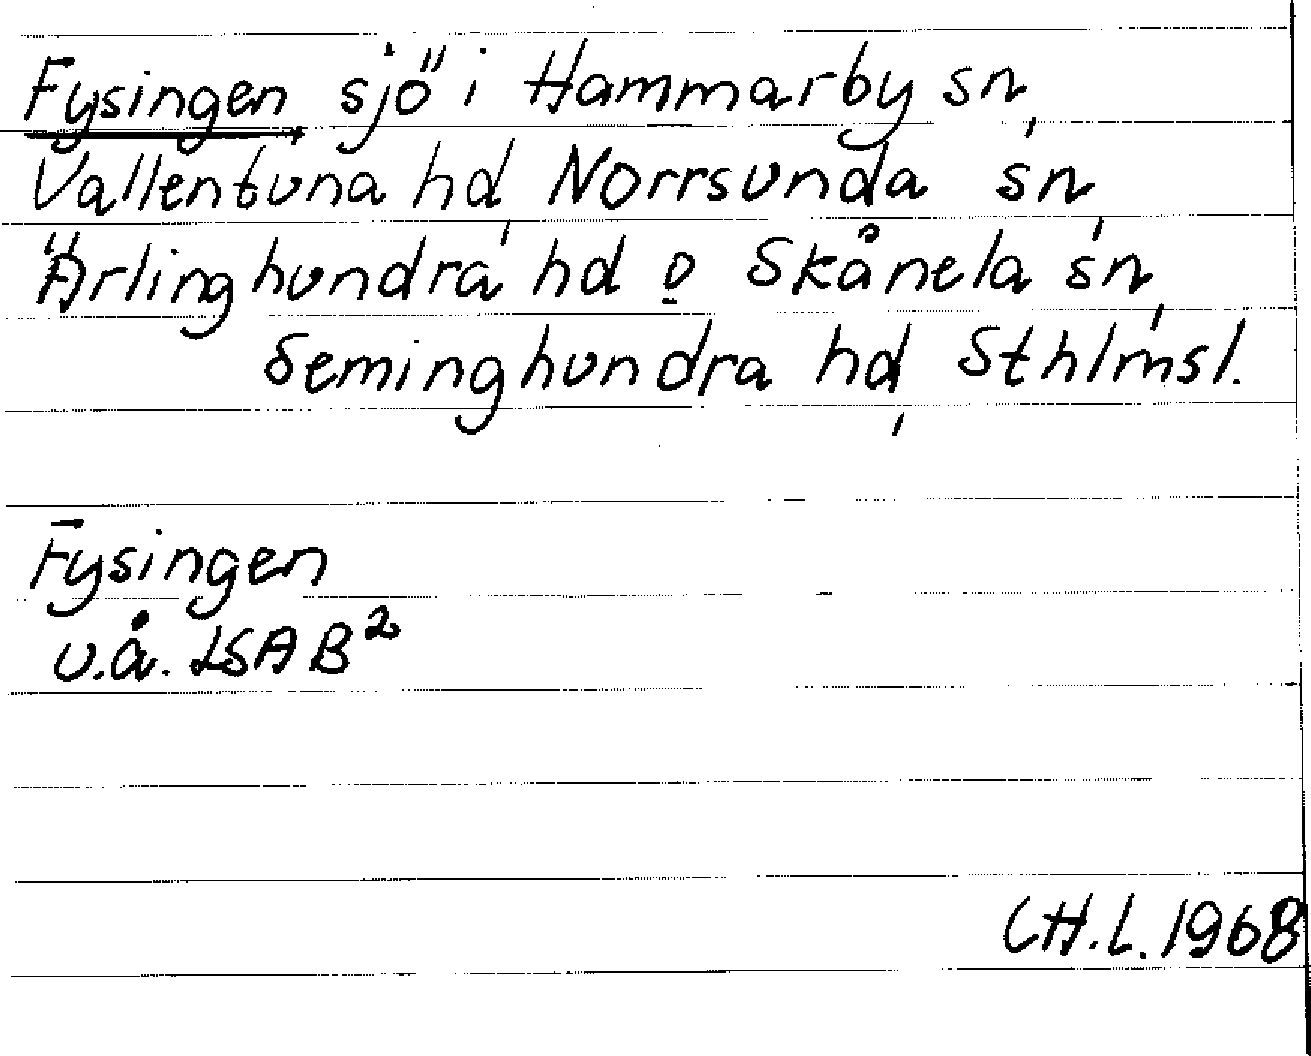 Fysingen sjö i Hammarby sn,
Vallentuna hd, Norrsunda sn,
Ärlinghundra hd o Skånela sn,
Seminghundra hd, Sthlmsl.
Fysingen
u.å. LSA B²
CH.L. 1968